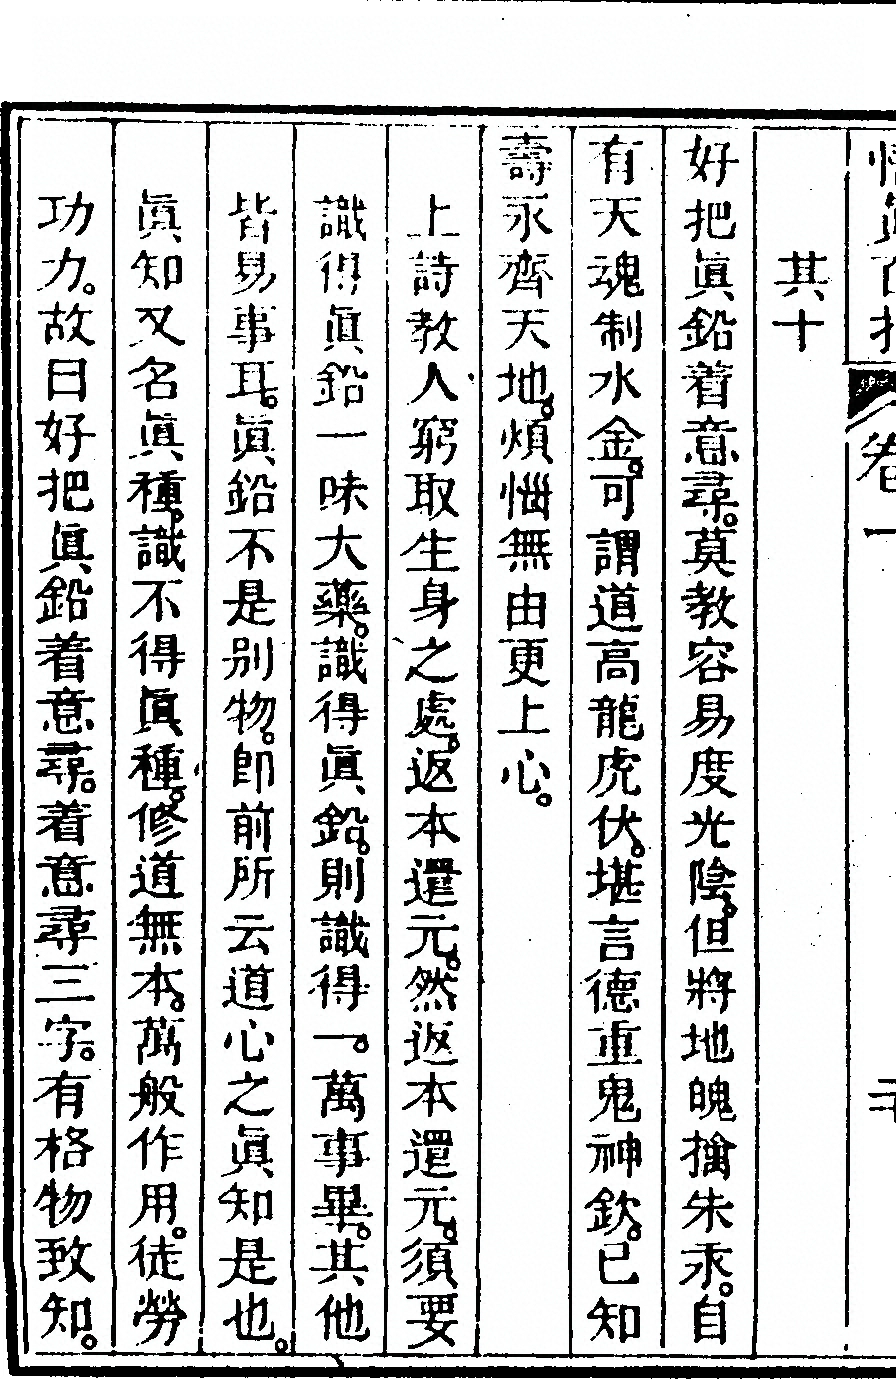 卷一
其十
好把眞鉛着意尋。莫教容易度光陰。但將地魄擒朱汞。自
有天魂制水金。可謂道高龍虎伏。堪言德重鬼神欽。已知
壽永齊天地。煩惱無由更上心。
上詩教人窮取生身之處。返本還元。然返本還元。須要
識得眞鉛一味大藥。識得眞鉛。則識得一。萬事畢。其他
皆易事耳。眞鉛不是别物。卽前所云道心之眞知是也。
眞知又名眞種。識不得眞種。修道無本。萬般作用。徒勞
功力。故曰好把眞鉛着意尋。着意尋三字。有格物致知。